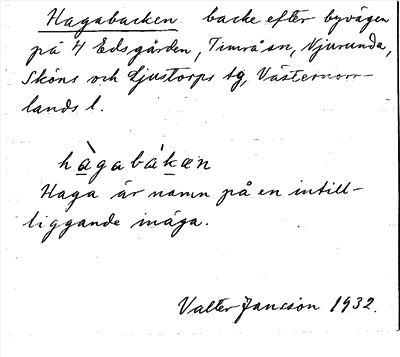 Hagabacken backe efter byvägen
på 4 Edsgården, Timrå sn, Njurunda,
Sköns och Ljustorps tg, Västernorr-
lands l.
hàgabákæn
Haga är namn på en intill-
liggande inäga.
Valter Jansson 1932.